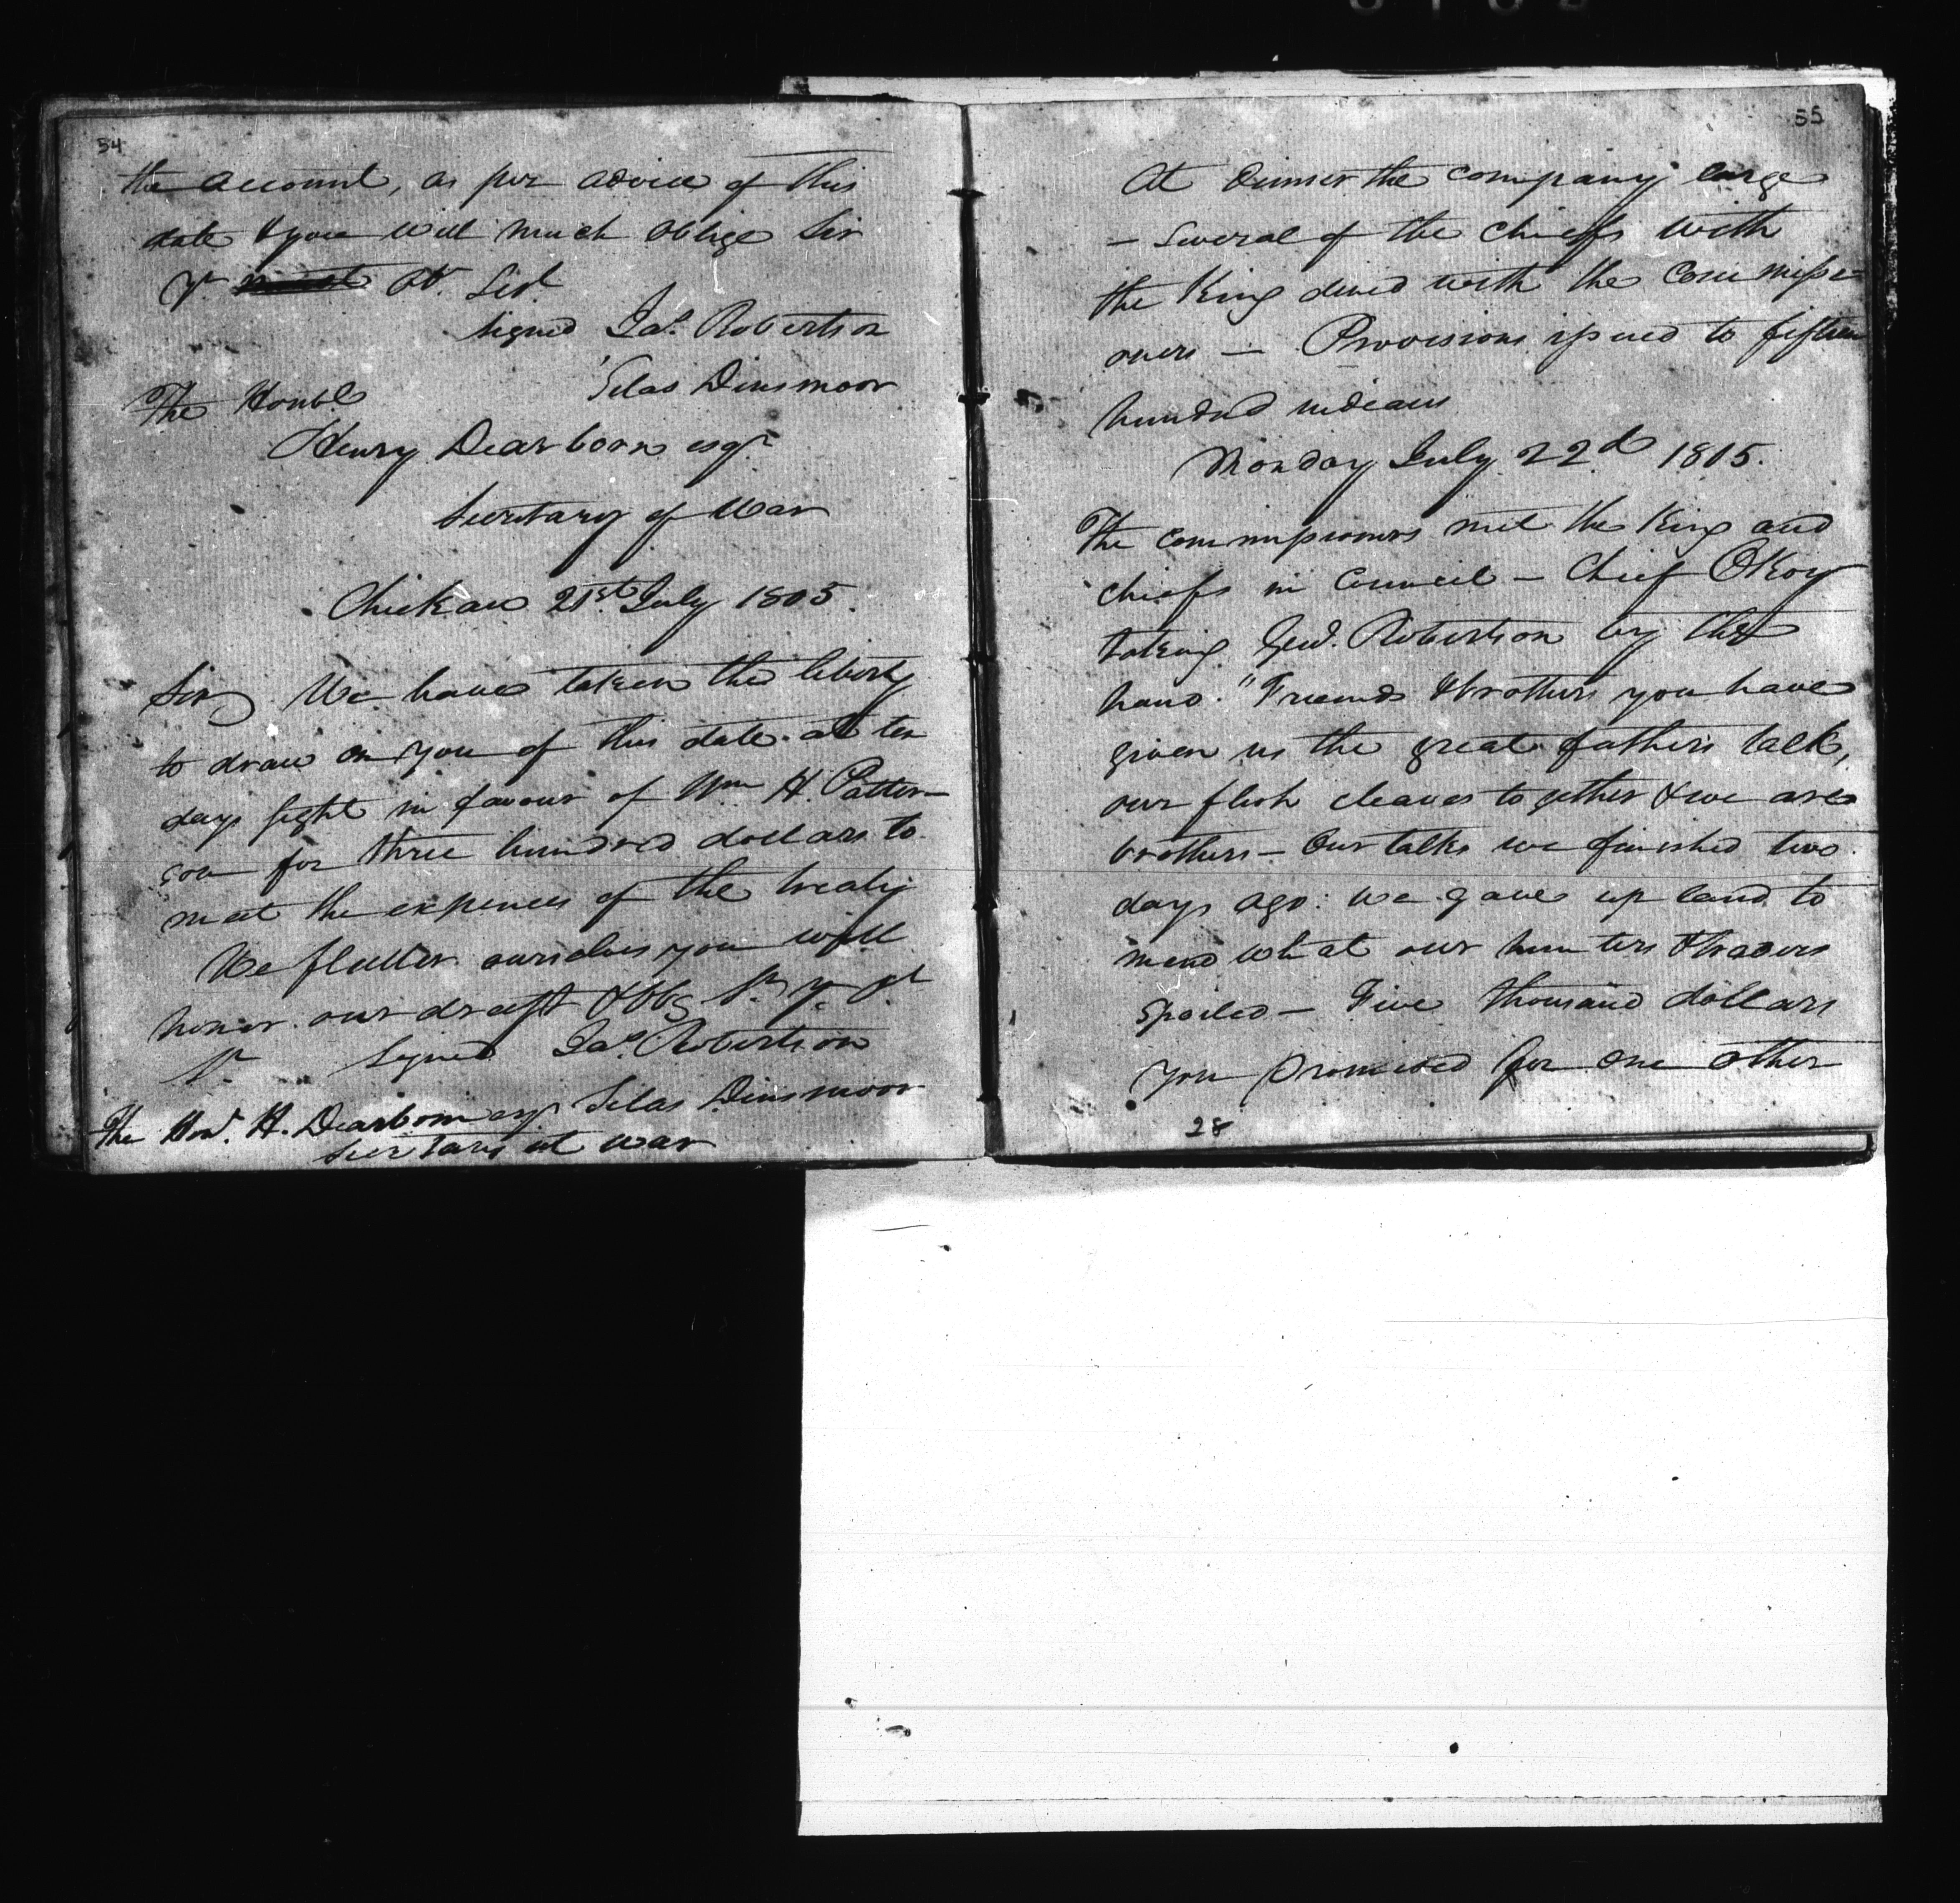 54
the account, as per advice of this
date & you will much oblige Sir
Yr most Ob. Sert
signed Jas. Robertson
Silas Dinsmoor
The Honble
Henry Dearborn esqr
Secretary of War
Chickasaw 21st July 1805.
Sir We have taken the liberty
to draw on you of this date at ten
days sight in favour of Wm H. Patter-
son for three hundred dollars to
meet the expences of the treaty
We flatter ourselves you will
honor our draft & oblg Sr yr
Sr signed Jas. Robertson
The Hon. H. Dearborn esqr Silas Dinsmoor
Secretary at War
55
At Dinner the company large
– several of the chiefs with
the King dined with the Commissi=
oners — Provisions issued to fifteen
hundred indians
Monday July 22d 1805.
The commissioners met the King and
chiefs in Council – Chief OKoy
taking Genl. Robertson by the
hand. "Friends & brothers you have
given us the great fathers talk,
our flesh cleaves together & we are
brothers – Our talks we finished two
days ago: we gave up land to
mend what our hunters & traders
spoiled – Five thousand dollars
you promised for one other
28